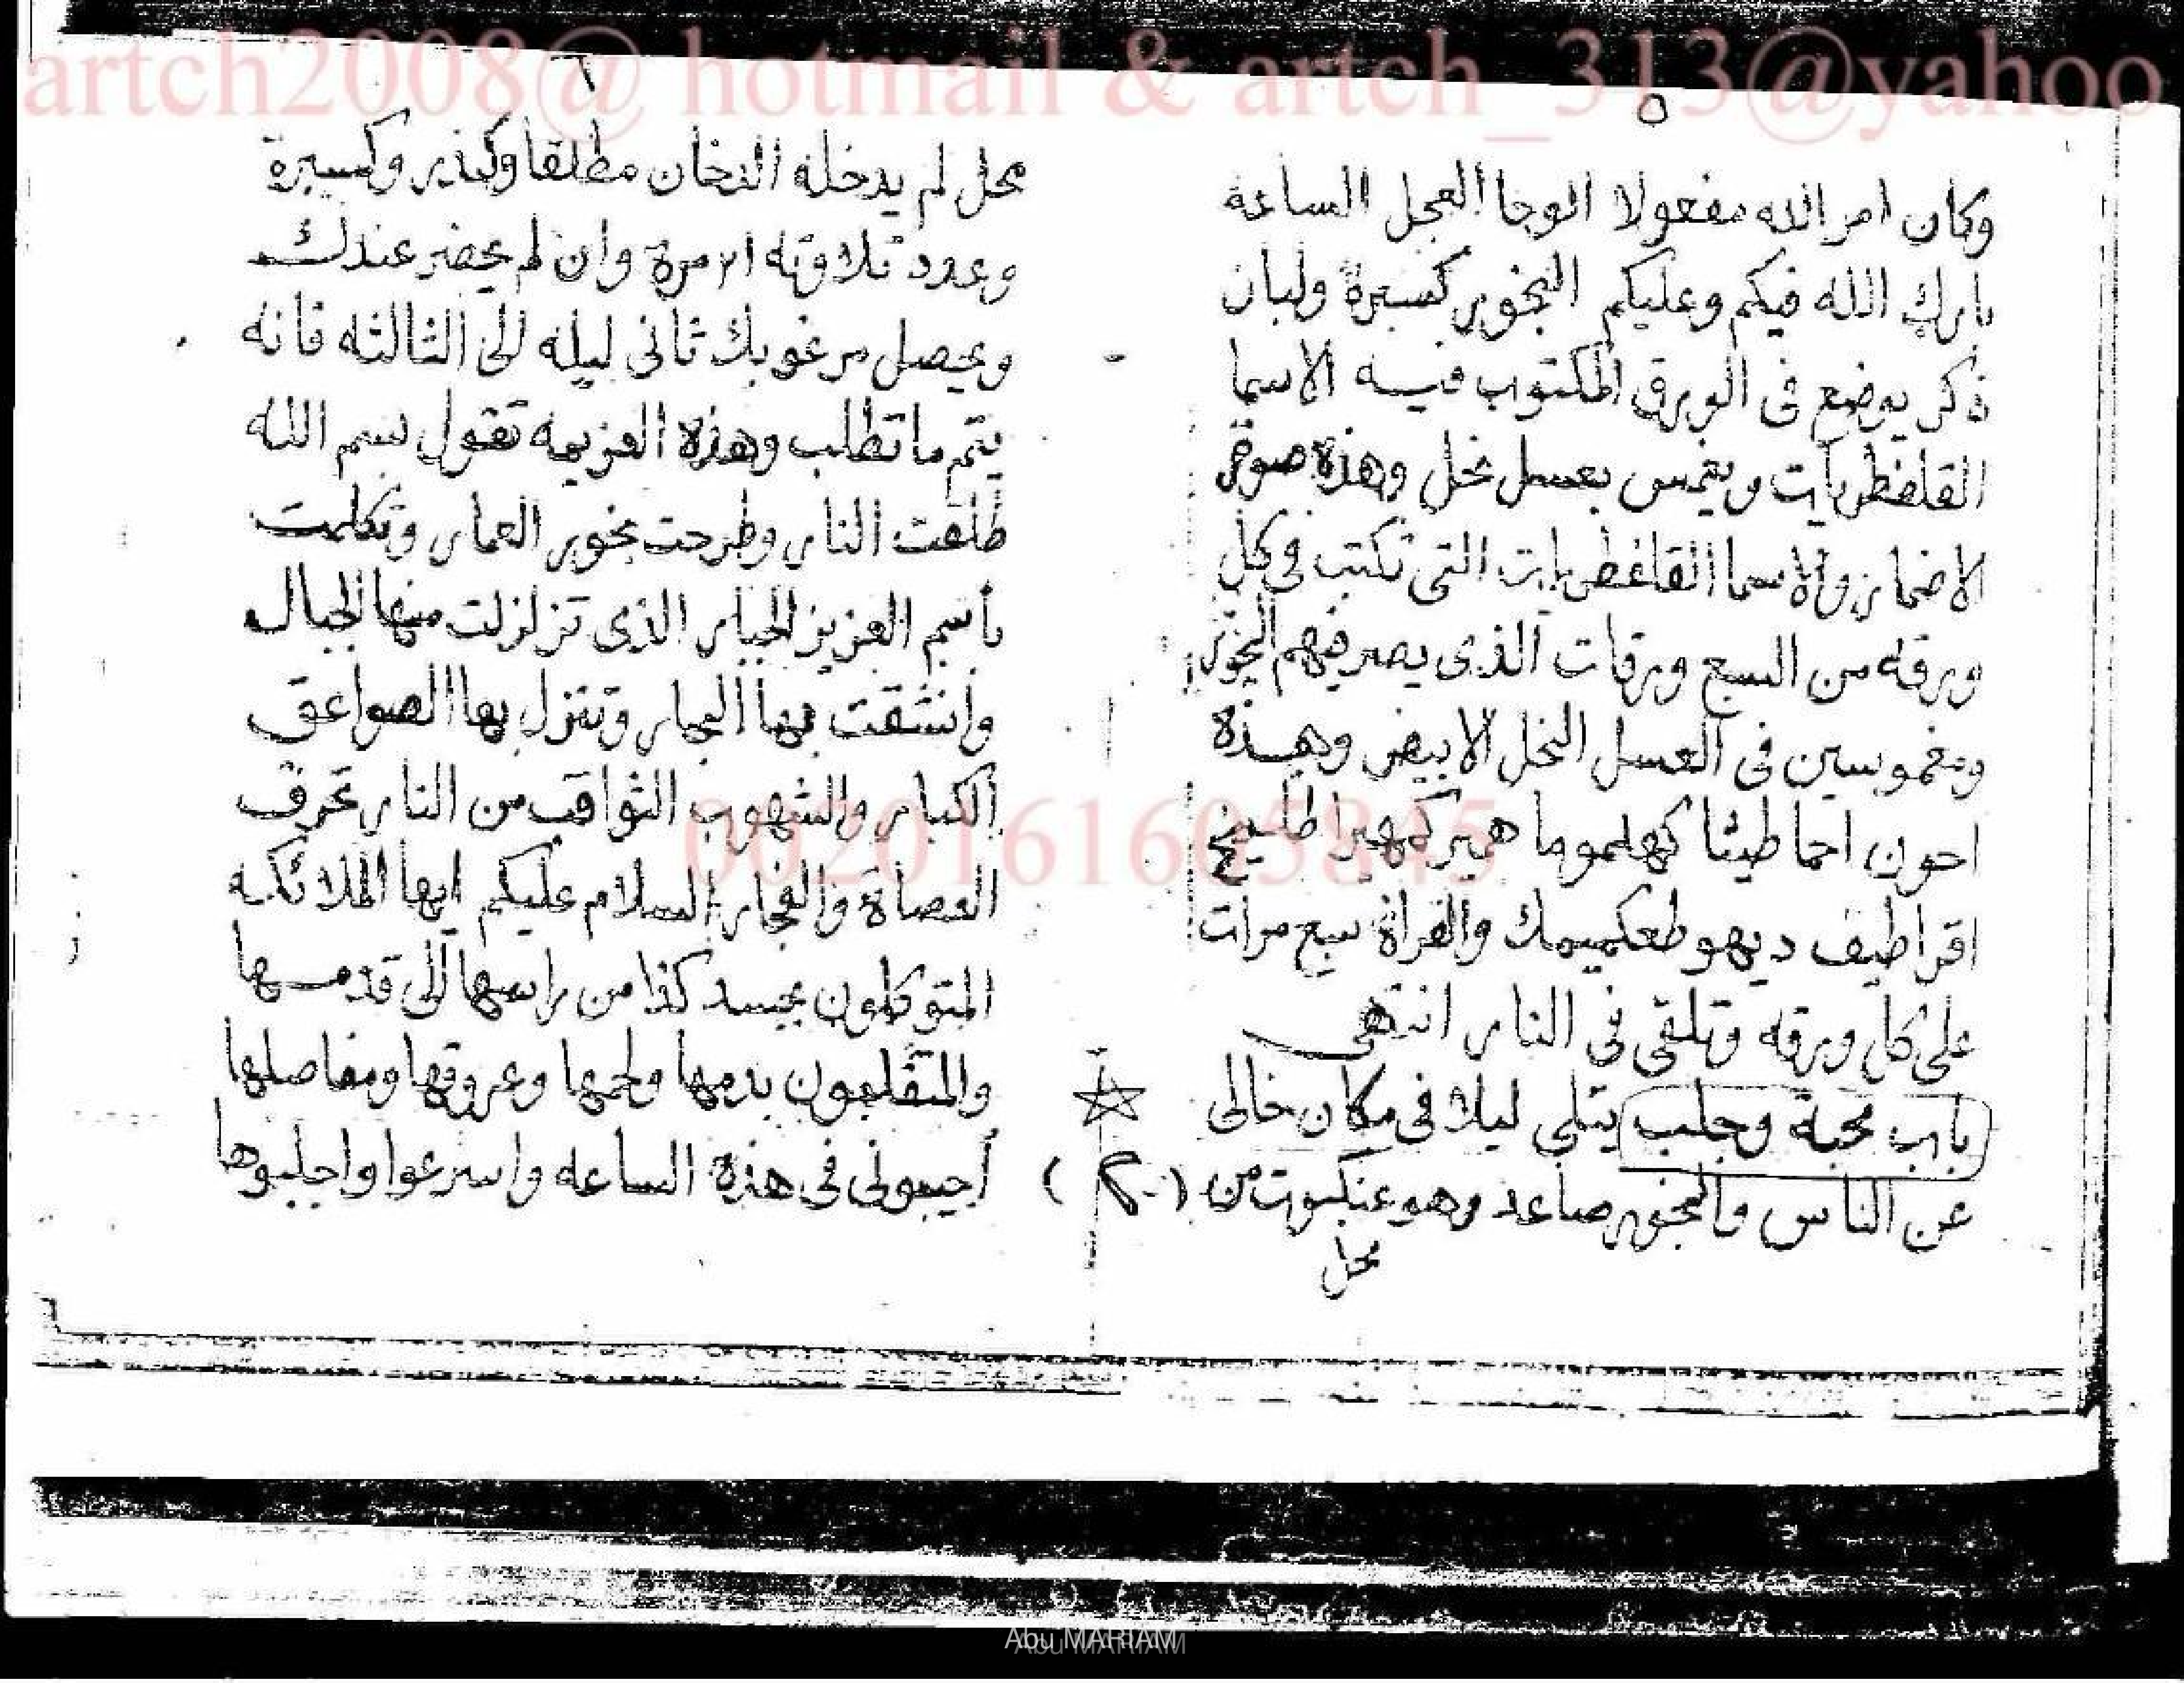 artch2008@ hotmail & artch_313@yahoo
٥
وكان امر الله مفعولا الوحا العجل الساعة
بارك الله فيكم وعليكم البخور كسبرة ولبان
ذكر يوضع فى الورق المكتوب فيه الاسما
القلفطريات ويغمس بعسل نحل وهذه صورة
الاضمار والاسما القلفطريات التى تكتب فى كل
ورقه من السبع ورقات الذى يصر فيهم البخور
ومغموسين فى العسل النحل الابيض وهذه
احون احما طيثا كهلموما هير كمهير اطليخ
اقراطيف ديهو طعكميمك والقراة سبع مرات
على كل ورقه وتلقى فى النار انتهى
باب محبة وجلب يتلى ليلا فى مكان خالى
عن الناس والبخور صاعد وهو عنكبوت من
محل
٦
محل لم يدخله الدخان مطلقا وكندر وكسبرة
وعدد تلاوته ٢١ مرة وان لم يحضر عندك
ويحصل مرغوبك ثانى ليله الى الثالثه فانه
يتم ما تطلب وهذه العزيمه تقول بسم الله
طلقت النار وطرحت بخور العمار وتكلمت
بأسم العزيز الجبار الذى تزلزلت منها الجبال
وانشقت بها البحار وتنزل بها الصواعق
الكبار والشهوب الثواقب من النار تحرق
العصاة والفجار السلام عليكم ايها الملائكه
المتوكلون بجسد كذا من راسها الى قدمها
والمتقلبون بدمها ولحمها وعروقها ومفاصلها
أجيبونى فى هذه الساعه واسرعوا واجلبوها
0020161605845
Abu MARIAM